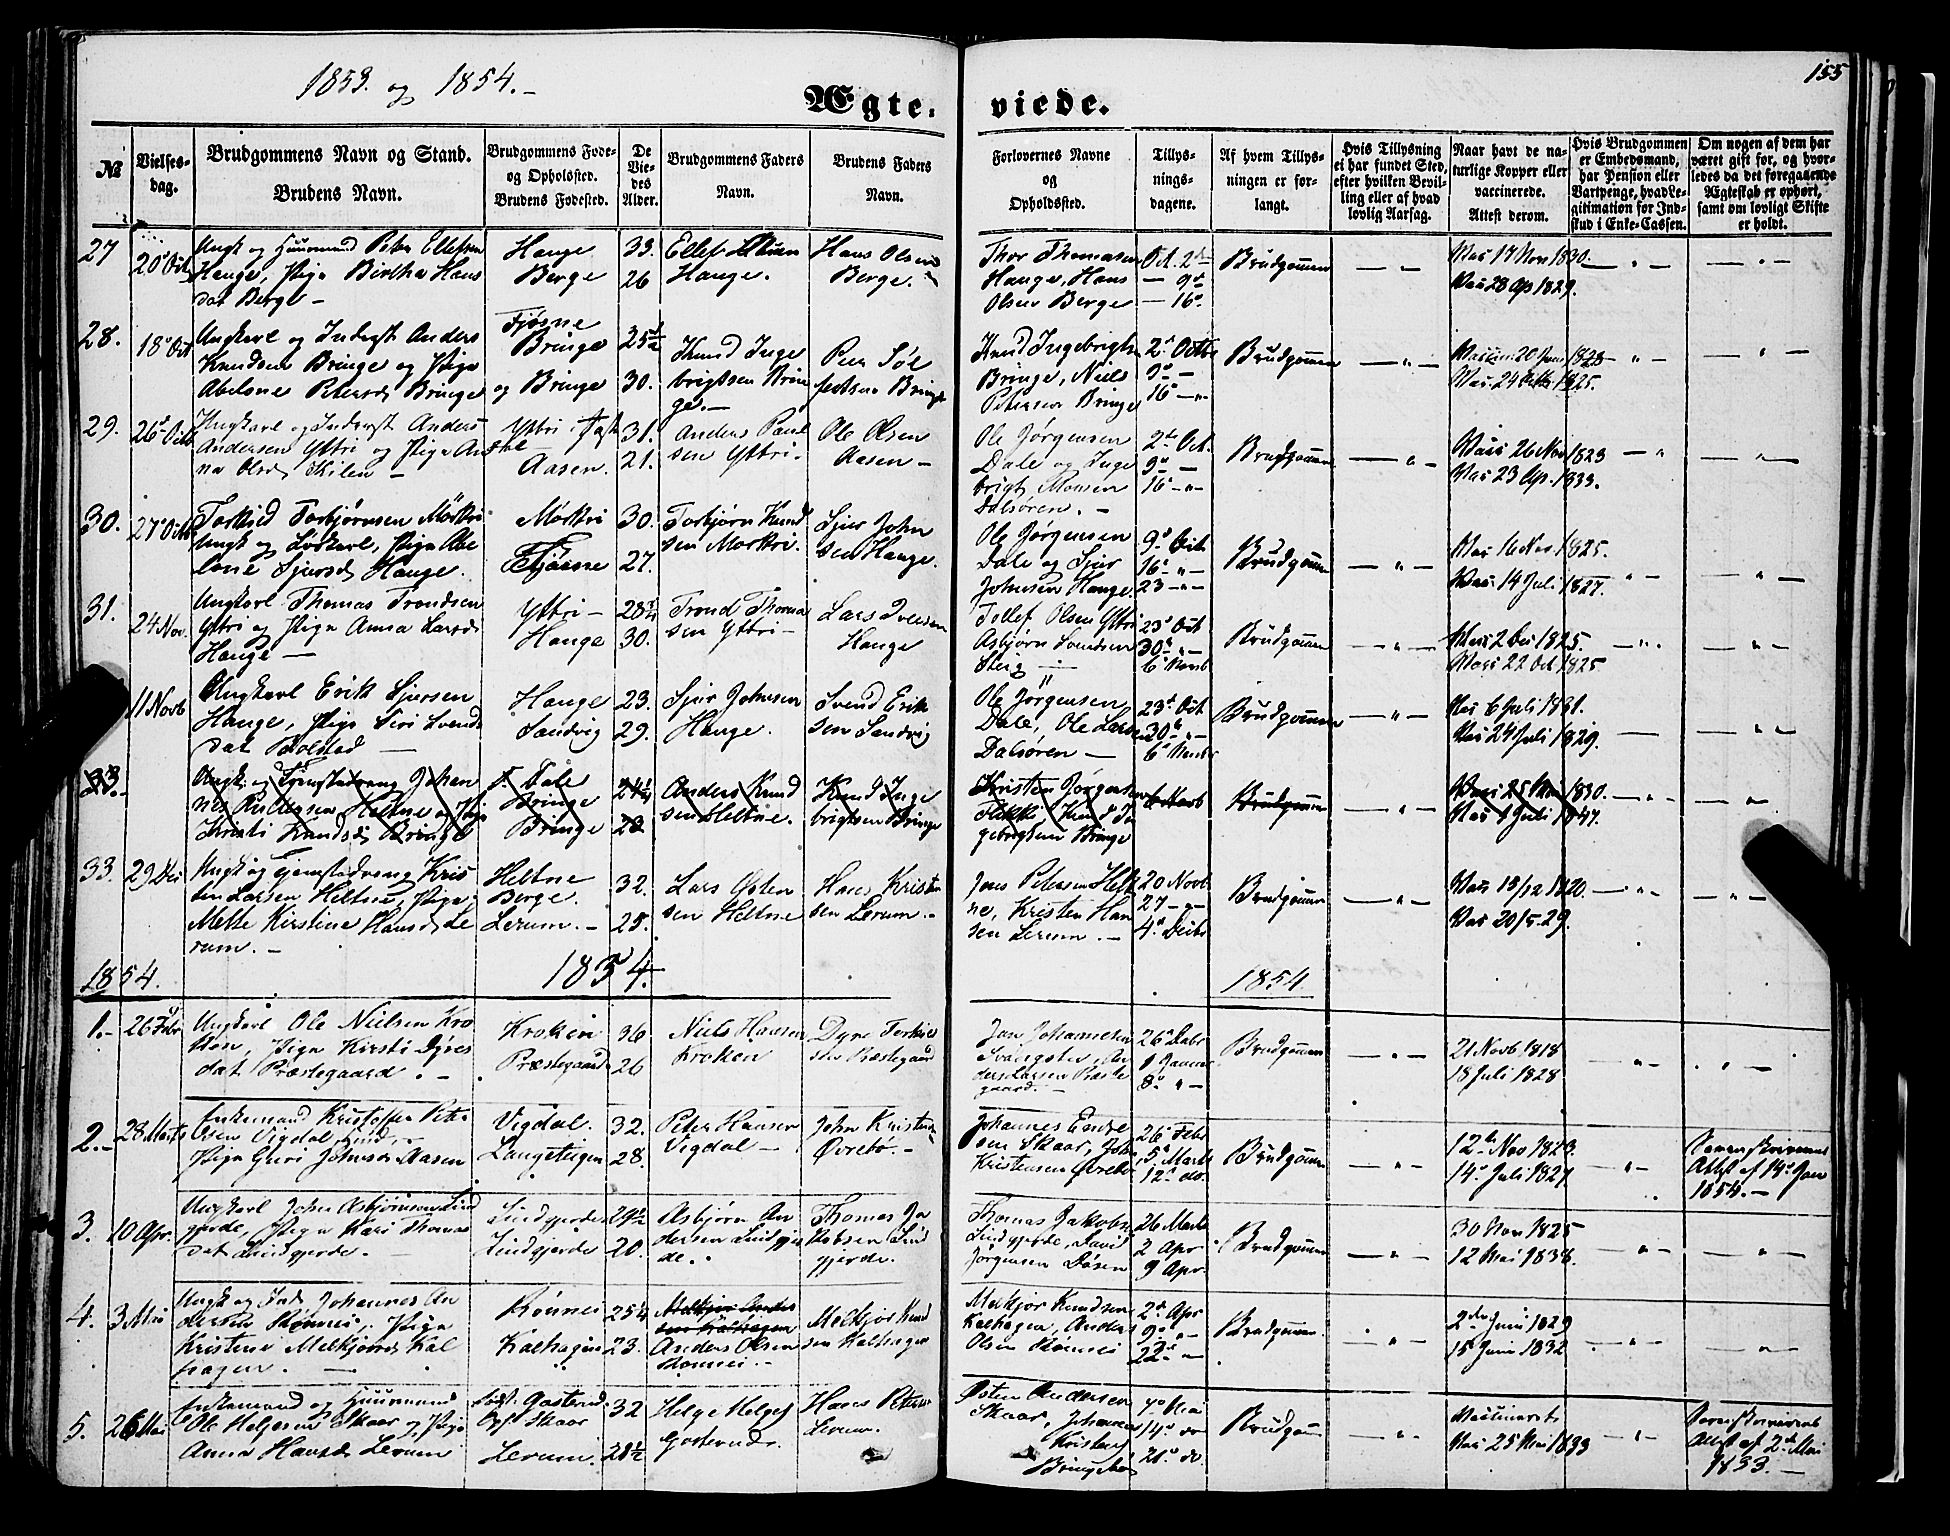 155
1853. og 1854.-
Ægte- viede.
№
Vielses-
dag.
Brudgommens Navn og Stand.
Brudens Navn.
Brudgommens Føde-
og Opholdssted.
Brudens Fødested.
De
Vie-
des
Alder.
Brudgommens Faders
Navn.
Brudens Faders
Navn.
Forlovernes Navne
og
Opholdssted.
Tillys-
nings-
dagene.
Af hvem Tillys-
ningen er for-
langt.
Hvis Tillysning
ei har fundet Sted,
efter hvilken Bevil-
ling eller af hvad
lovlig Aarsag.
Naar havt de na-
turlige Kopper eller
vaccinerede.
Attest derom.
Hvis Brudgommen
er Embedsmand,
har Pension eller
Vartpenge, hvad Le-
gitimation for Ind-
skud i Enke-Cassen.
Om nogen af dem har
været gift før, og hvor-
ledes da det foregaaende
Ægteskab er ophørt,
samt om lovligt Skifte
er holdt.
27 20 Oct
Ungk og Huusmand Peter Ellefsen
Hauge, Pige Birtha Hans
dat Berge -
Hauge 33.
Berge 26
Ellef
Hauge.
Hans Olsen
Berge.
Thor Thomasen
Hauge, Hans
Olsen Berge
Oct. 2d
- 9d
- 16d
Brudgommen
Vac 17 Nov 1830.
Vac 28 Ap 1829.
28. 18 Oct
Ungkarl og Inderst Anders
Knudsen Bringe og Pige
Abelone Petersd Bringe
Fjøsne
Bringe 25½
og Bringe 30.
Knud Inge
brigtsen Brin
ge.-
Peter Søl
festsen Bringe
Knud Ingebrigtsen
Bringe, Niels
Petersen Bringe
2d Octb
9d -
16d -
Brudgommen
1825.
29. 26 Octb
Ungkarl og Inderst Anders
Andersen Yttri og Pige An
na Olsd Kilen -
Yttri 31.
Aasen. 21.
Anders Paul
sen Yttri.
Ole Olsen
Aasen -
Ole Jørgensen
Dale og Inge
brigt Monsen
Dalsøren. -
2d Oct.
9d -
16d -
Brudgommen
Vac 26 Nov 1823
Vac 23 Ap. 1833.
30. 27 Octb
Torkild Torbjørnsen Mørkri
Ungk og Løskarl, Pige Abe
lone Sjursd Hauge.
Mørkri 30.
Fjøsne 27.
Torbjørn Knud
sen Mørkri.
Sjur John
sen Hauge.
Ole Jørgensen
Dale og Sjur
Johnsen Hauge
9d Oct.
16d
23
Brudgommen
Vac 16 Nov. 1825.
Vac 14 Juli 1827.
31. 24 Nov.
Ungkarl Thomas Trondsen
Yttri og Pige Anna Larsd
Hauge -
Yttri -
Hauge 30.
Trond Thoma
sen Yttri -
Lars Iversen
Hauge
Tollef Olsen Yttri
Asbjørn Svendsen
23d Oct
30d
6d Novb
Brudgommen
Vac 2 Dec 1825.
Vac 22 Oct 1825
11 Novb
Ungkarl Erik Sjursen
Hauge, Pige Siri Svends
dat Bolstad -
Hauge 23.
Sandvig 29.
Sjur Johnsen
Hauge.
Svend Erik
sen Sandvig
Ole Jørgensen
Dale, Ole Larsen
Dalsøren -
23d Oct
30d
6d Novbr
Brudgommen
Vac 6 Juli 1831.
Vac 24 Juli 1829.
33.
Ungk. og Johan
nes Andersen Heltne og Pige
Kristi Knudsd Bringe
f. Dale
Bringe
Bringe 23
Anders Knud
sen Heltne.
Knud Inge
brigtsen Bringe
Kristen Jørgensen
Flekke, Knud In
gebrigtsen Bringe
Brudgommen
Vac 25 Mai 1830.
Vac 1 Juli 1847.
33. 29 Dec
Ungk og Gjenstadsung Kris
ten Larsen Heltne, Pige
Mette Kirstine Hansd Le
rum. -
Heltne 32.
Berge.
Lerum. - 25.
Lars Østen
sen Heltne
Hans Kristen
sen Lerum. -
Jens Petersen Helt
ne, Kristen Han
sen Lerum. -
20 Novb
27 -
4d Decbr
Brudgommen
Vac 13/12 1820.
Vac 20/5 29.
1854. 1854. 1854
1.- 26 Febr
Ungkarl Ole Nielsen Kro
ken, Pige Kirsti Dyres
dat Præstegaard. -
Kroken 36
Præstegaard 26
Niels Hansen
Kroken
Dyre Torkild
sen Præstegaard
Jan Johannesen
Svangstu, An
ders Larsen Præste
gaard. -
26d Decbr
1 Januar
8d -
Brudgommen
21 Novb 1818
18 Juli 1828
2.- 28 Marts
Enkemand Kristoffer Peter
sen Vigdal
Pige Guri Johnsd Aasen
Vigdal. 32.
Langeteigen 28.
Peter Hansen
Vigdal -
John Kristensen
Øvrebø. -
Johannes Endre
sen Skaar, John
Kristensen Øvrebø
26d Febr
5d Marts
12d do.
Brudgommen
12te Nov 1823.
14d Juli 1827
Sorenskriverens
Attest af 14d Jan
1854. -
3. 10 Apr.
Ungkarl John Asbjørnsen Lind
gjerde, Pige Kari Thomas
dat Lindgjerde. -
Lindgjerde 29½
Lindgjerde 20.
Asbjørn An
dersen Lindgjer
de.
Thomas Ja
kobsen Lind
gjerde.
Thomas Jakobs.
Lindgjerde, David
Jørgensen Døsen
26 Marts
2 Apr
9 Apr.
Brudgommen
30 Nov 1825
12 Mai 1838.
4. 3 Mai
Ungk og Inds Johannes An
dersen Rønnei, Pige
Kristine Melkjørsd Kal
hagen. -
Rønnei 25¼
Kalhagen 23.
Melkjør Anders
sen Kalhagen
Anders Olsen
Rønnei. -
Melkjør Knud
sen Kalhagen
Melkjør Knudsen
Kalhagen, Anders
Olsen Rønnei
2d Apr
9d
22d
Brudgommen.
2den Juni 1829
15 Juni 1832
5. 26 Mai
Enkemand og Huusmand
Ole Helgesen Skaar og Pige
Anna Hansd Lerum
født. Gasterud 32
Opf Skaar
Lerum. 28½
Helge Helges
Gasterud.
Hans Peters
Lerum.
Østen Andersen
Skaar, Johannes
Kristens
7d Mai
14d do
21d do.
Brudgom
Vac 25 Mai 1833
Sorenskriverens
Attest af 2d Mai
1833. -